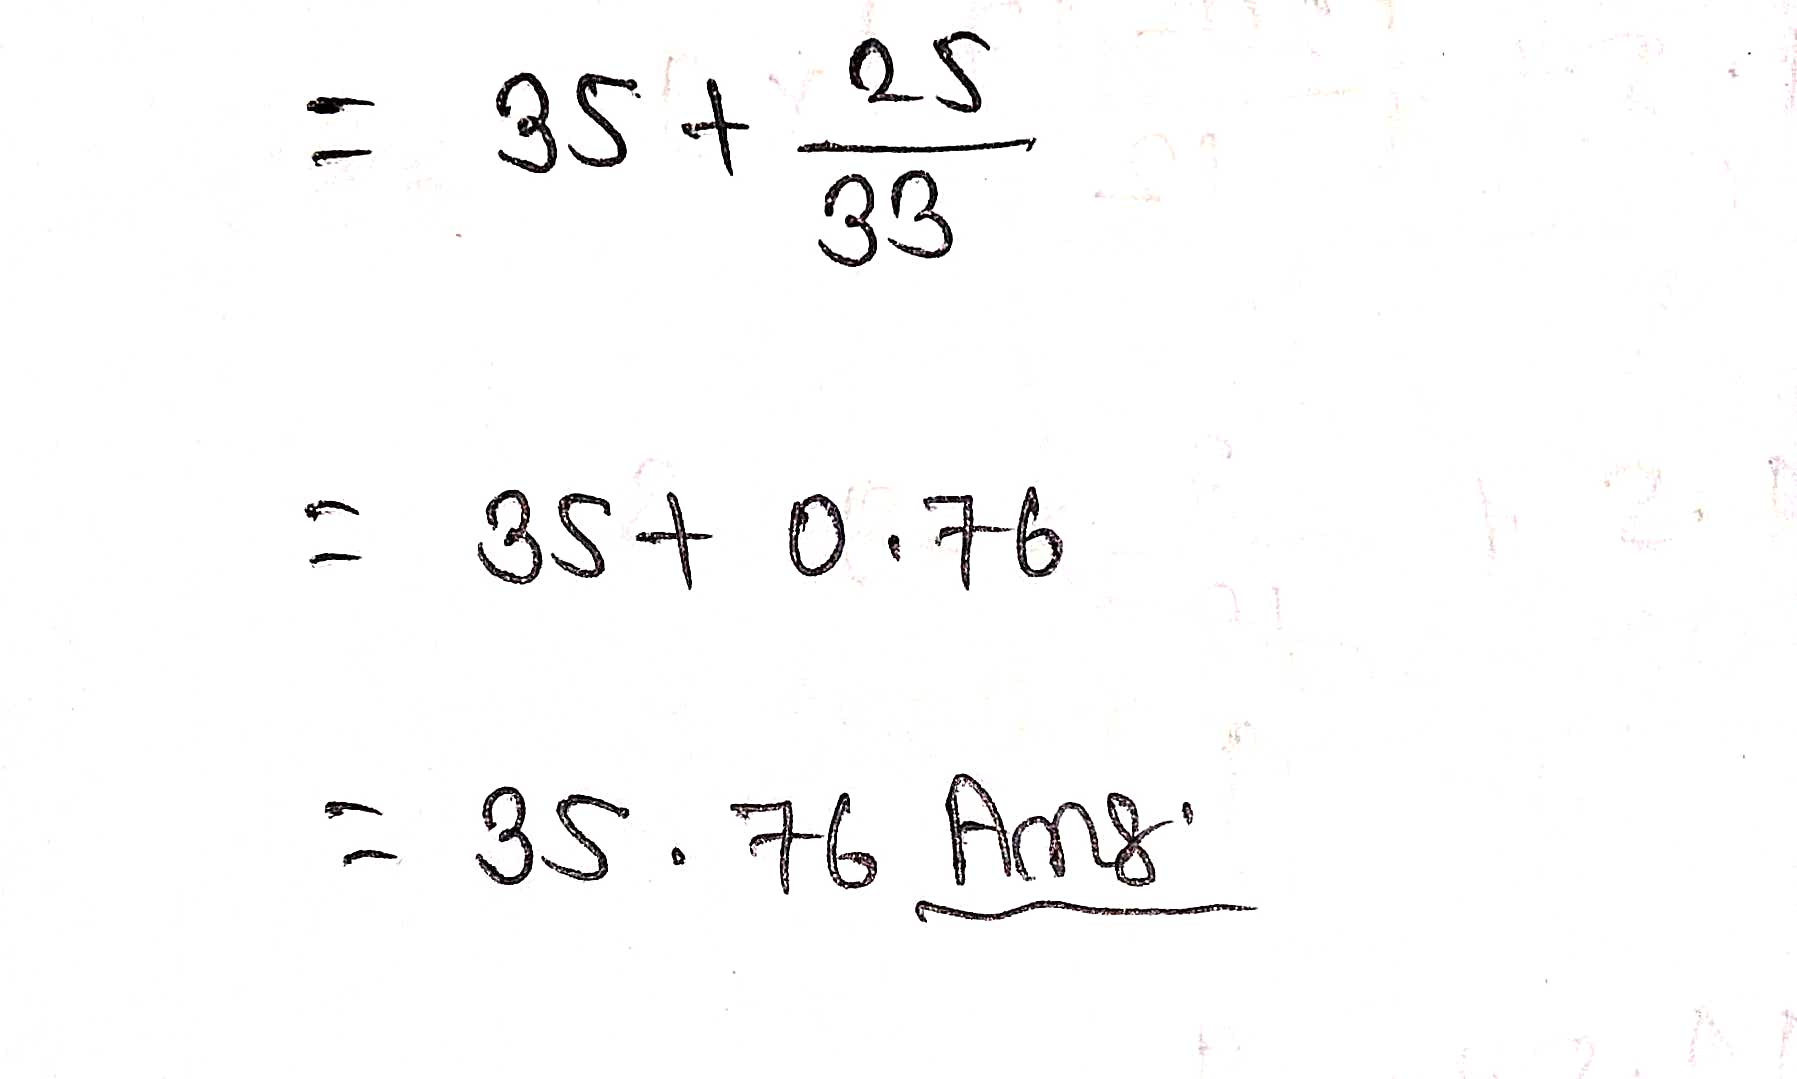 = 35 + 25/33
= 35 + 0.76
= 35.76 Ans.